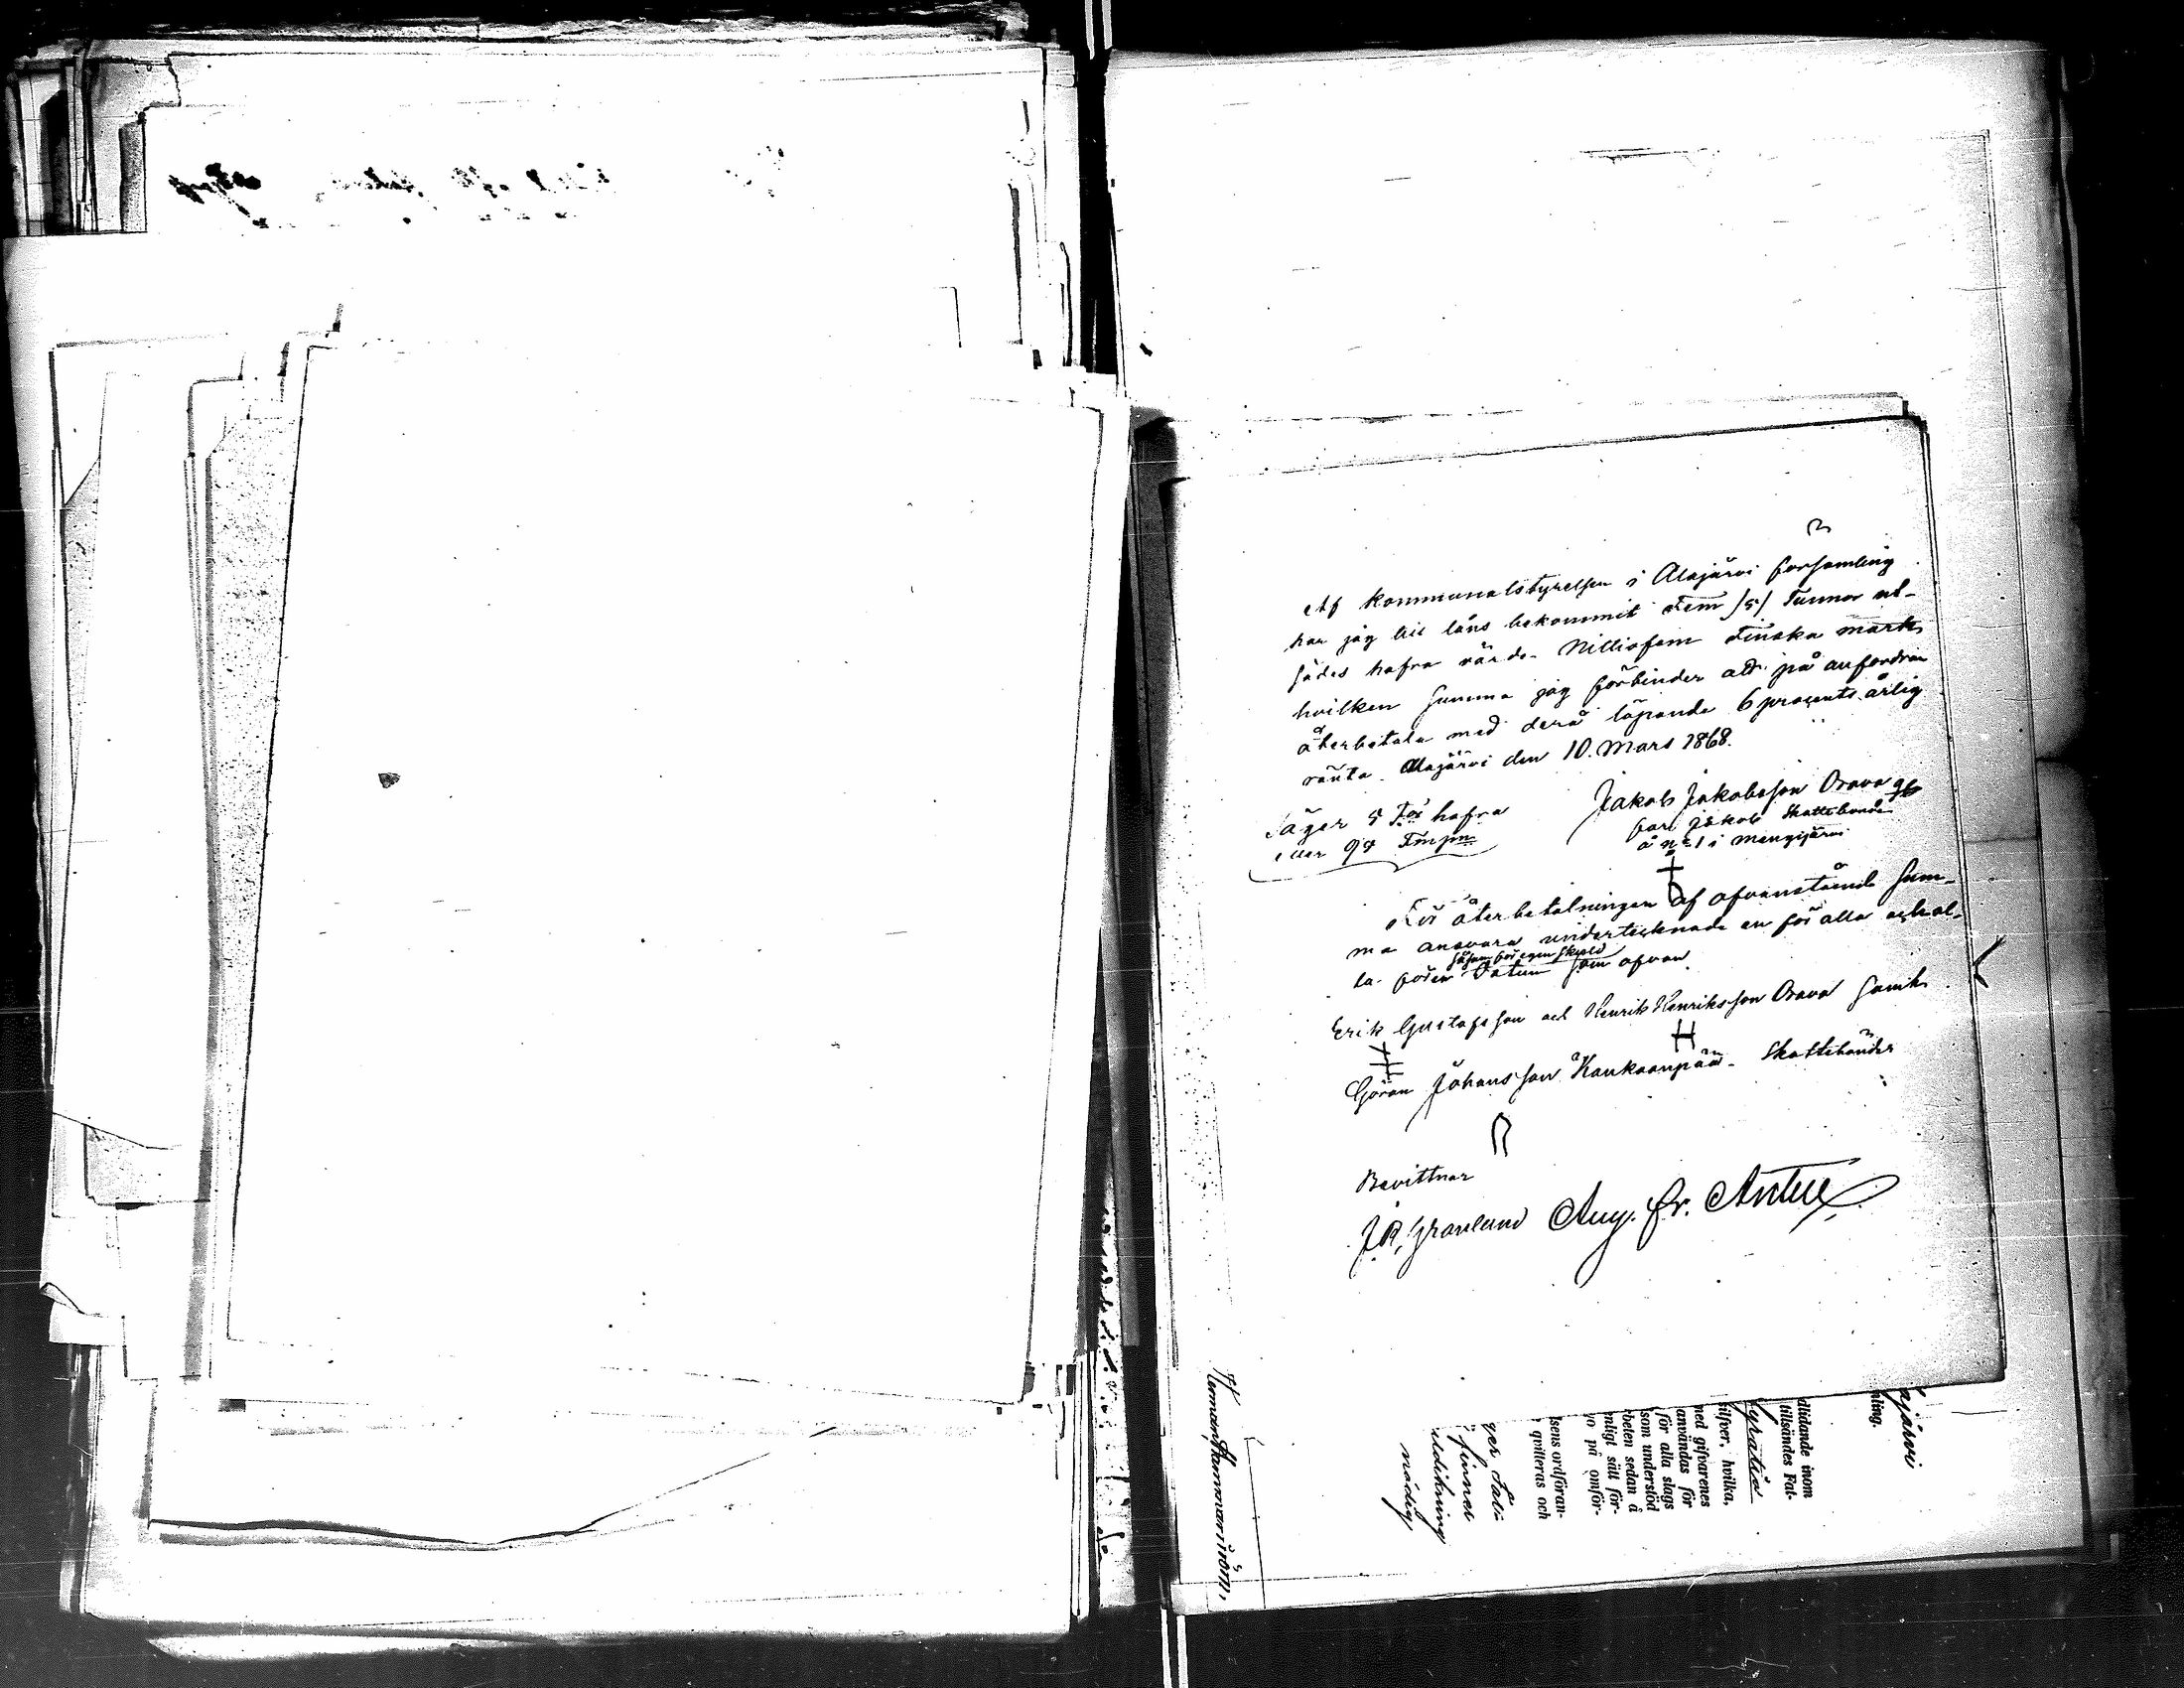 Af Kommunalstyrelsen i Alajärvi församling
har jag till låns bekommit Fem /5/ Tunnor ut-
sädes hafra värde Nittiofem Finska mark,
hvilken summa jag förbinder att på anfordran
återbetala med derå löpande 6 procents årlig
ränta. Alajärvi den 10. Mars 1868.
Säger 5 T:or hafra
eller 95 Fmpn
Jakob Jakobsson Orava gb
far Jakob Skattebonde
å N:o 1 i Menkijärvi
För återbetalningen af ofvanstående Sum-
ma ansvara undertecknade en för alla och al-
la för en
såsom för egen skuld
Datum som ofvan.
Erik Gustafsson och Henrik Henriksson Orava samt
Göran Johansson Kaukaanpää - Skattebönder
Bevittnar
J.R. Granlund Aug. Fr. Antell
Herman Hammarström,
ajärvi
mling.
dlidande inom
tillsändes Fat-
gratis
silfver, hvilka,
med gifvarenes
användas för
för alla slags
som understöd
rbeten sedan å
mligt sätt för-
vo på omför-
lsens ordföran-
qvitteras och
finnes
nådig